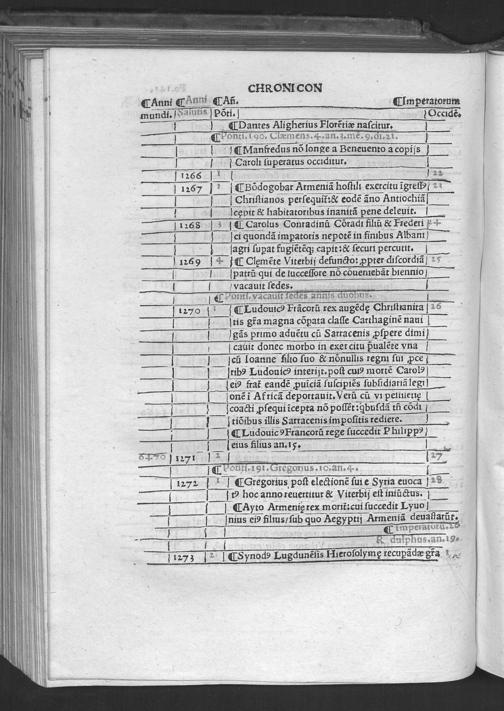 CHRONICON
¶Anni ¶Anni ¶Añ. ¶Imperatorum
mundi. Salutis Pōti. Occidē.
¶Dantes Aligherius Florētiæ nascitur.
¶Ponti.190. Clæmens.4.an.3.mē.9.di.21.
¶Manfredus nō longe a Beneuento a copijs
Caroli superatus occiditur.
1266 1 22
1267 2 ¶Bōdogobar Armeniā hostili exercitu īgress⁹ 23
Christianos persequit᷑: & eodē āno Antiochiā
cepit & habitatoribus inanitā pene deleuit.
1268 3 ¶Carolus Conradinū Cōradi filiū & Frederi 24
ci quondā impatoris nepotē in finibus Albani
agri supat fugiētēq; capit: & securi percutit.
1269 4 ¶Clemēte Viterbij defuncto: ꝓpter discordiā 25
patrū qui de successore nō cōueniebāt biennio
vacauit sedes.
¶Ponti. vacauit sedes annis duobus.
1270 1 ¶Ludouic⁹ Frācorū rex augēdę Christianita 26
tis gr̄a magna cōpata classe Carthaginē naui
gās primo aduētu cū Sarracenis ꝓspere dimi
cauit donec morbo in exercitu p̄ualēte vna
cū Ioanne filio suo & nōnullis regni sui ꝓce
rib⁹ Ludouic⁹ interijt. post cui⁹ mortē Carol⁹
ei⁹ frat̄ eandē ꝓuīciā suscipiēs subsidiariā legi
onē ī Africā deportauit. Verū cū vi petitiōe
coacti ꝓsequi īcepta nō possēt: qbusdā tñ cōdi
tiōibus illis Sarracenis impositis rediere.
¶Ludouic⁹ Francorū rege succedit Philipp⁹
eius filius an.15.
6470 1271 2 27
¶Ponti.191. Gregorius.10.an.4.
1272 1 ¶Gregorius post electionē sui e Syria euoca 28
t⁹ hoc anno reuertitur & Viterbij est iniūctus.
¶Ayto Armenię rex morit᷑: cui succedit Lyuo
nius ei⁹ filius/sub quo Aegyptij Armeniā deuastarūt.
¶Imperatorū.26
R dulphus.an.19.
1273 2 ¶Synod⁹ Lugdunēsis Hierosolymę recupādæ gr̄a 1